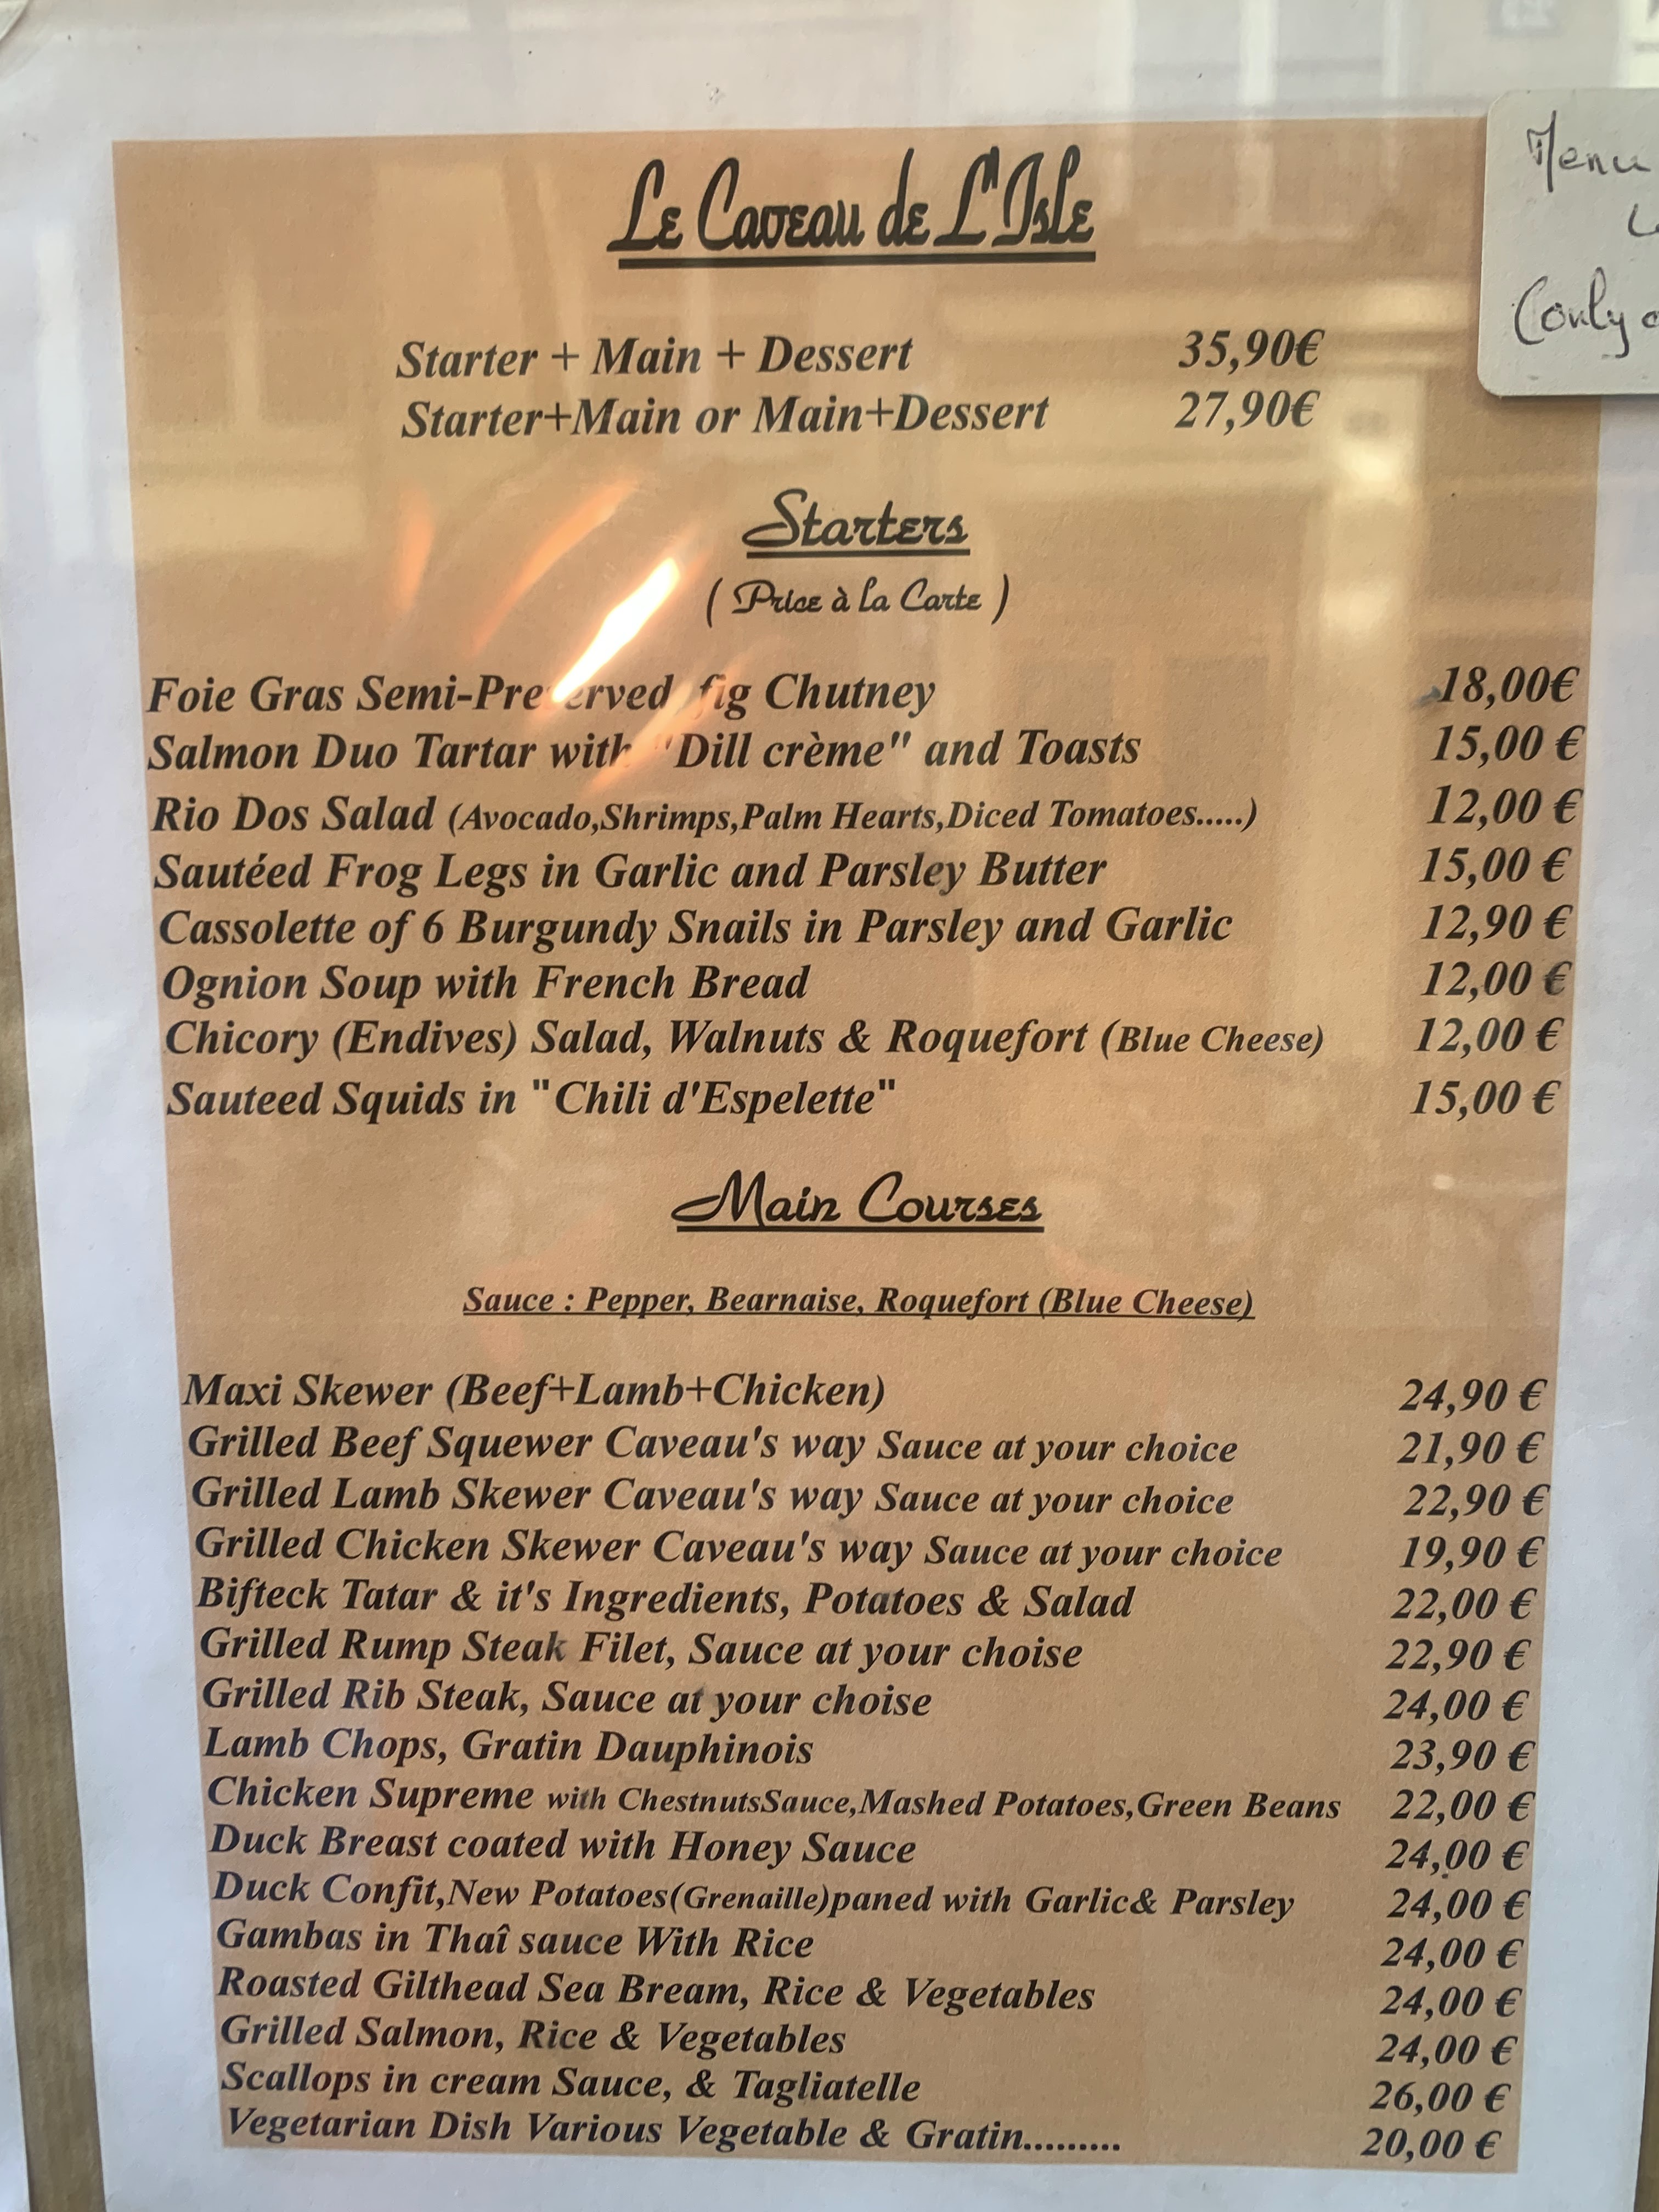 Le Caveau de L'Isle
Menu
(only
Starter + Main + Dessert 35,90€
Starter+Main or Main+Dessert 27,90€
Starters
( Price à la Carte )
Foie Gras Semi-Preserved fig Chutney 18,00€
Salmon Duo Tartar with "Dill crème" and Toasts 15,00 €
Rio Dos Salad (Avocado,Shrimps,Palm Hearts,Diced Tomatoes.....) 12,00 €
Sautéed Frog Legs in Garlic and Parsley Butter 15,00 €
Cassolette of 6 Burgundy Snails in Parsley and Garlic 12,90 €
Ognion Soup with French Bread 12,00 €
Chicory (Endives) Salad, Walnuts & Roquefort (Blue Cheese) 12,00 €
Sauteed Squids in "Chili d'Espelette" 15,00 €
Main Courses
Sauce : Pepper, Bearnaise, Roquefort (Blue Cheese)
Maxi Skewer (Beef+Lamb+Chicken) 24,90 €
Grilled Beef Squewer Caveau's way Sauce at your choice 21,90 €
Grilled Lamb Skewer Caveau's way Sauce at your choice 22,90 €
Grilled Chicken Skewer Caveau's way Sauce at your choice 19,90 €
Bifteck Tatar & it's Ingredients, Potatoes & Salad 22,00 €
Grilled Rump Steak Filet, Sauce at your choise 22,90 €
Grilled Rib Steak, Sauce at your choise 24,00 €
Lamb Chops, Gratin Dauphinois 23,90 €
Chicken Supreme with ChestnutsSauce,Mashed Potatoes,Green Beans 22,00 €
Duck Breast coated with Honey Sauce 24,00 €
Duck Confit,New Potatoes(Grenaille)paned with Garlic& Parsley 24,00 €
Gambas in Thaî sauce With Rice 24,00 €
Roasted Gilthead Sea Bream, Rice & Vegetables 24,00 €
Grilled Salmon, Rice & Vegetables 24,00 €
Scallops in cream Sauce, & Tagliatelle 26,00 €
Vegetarian Dish Various Vegetable & Gratin......... 20,00 €